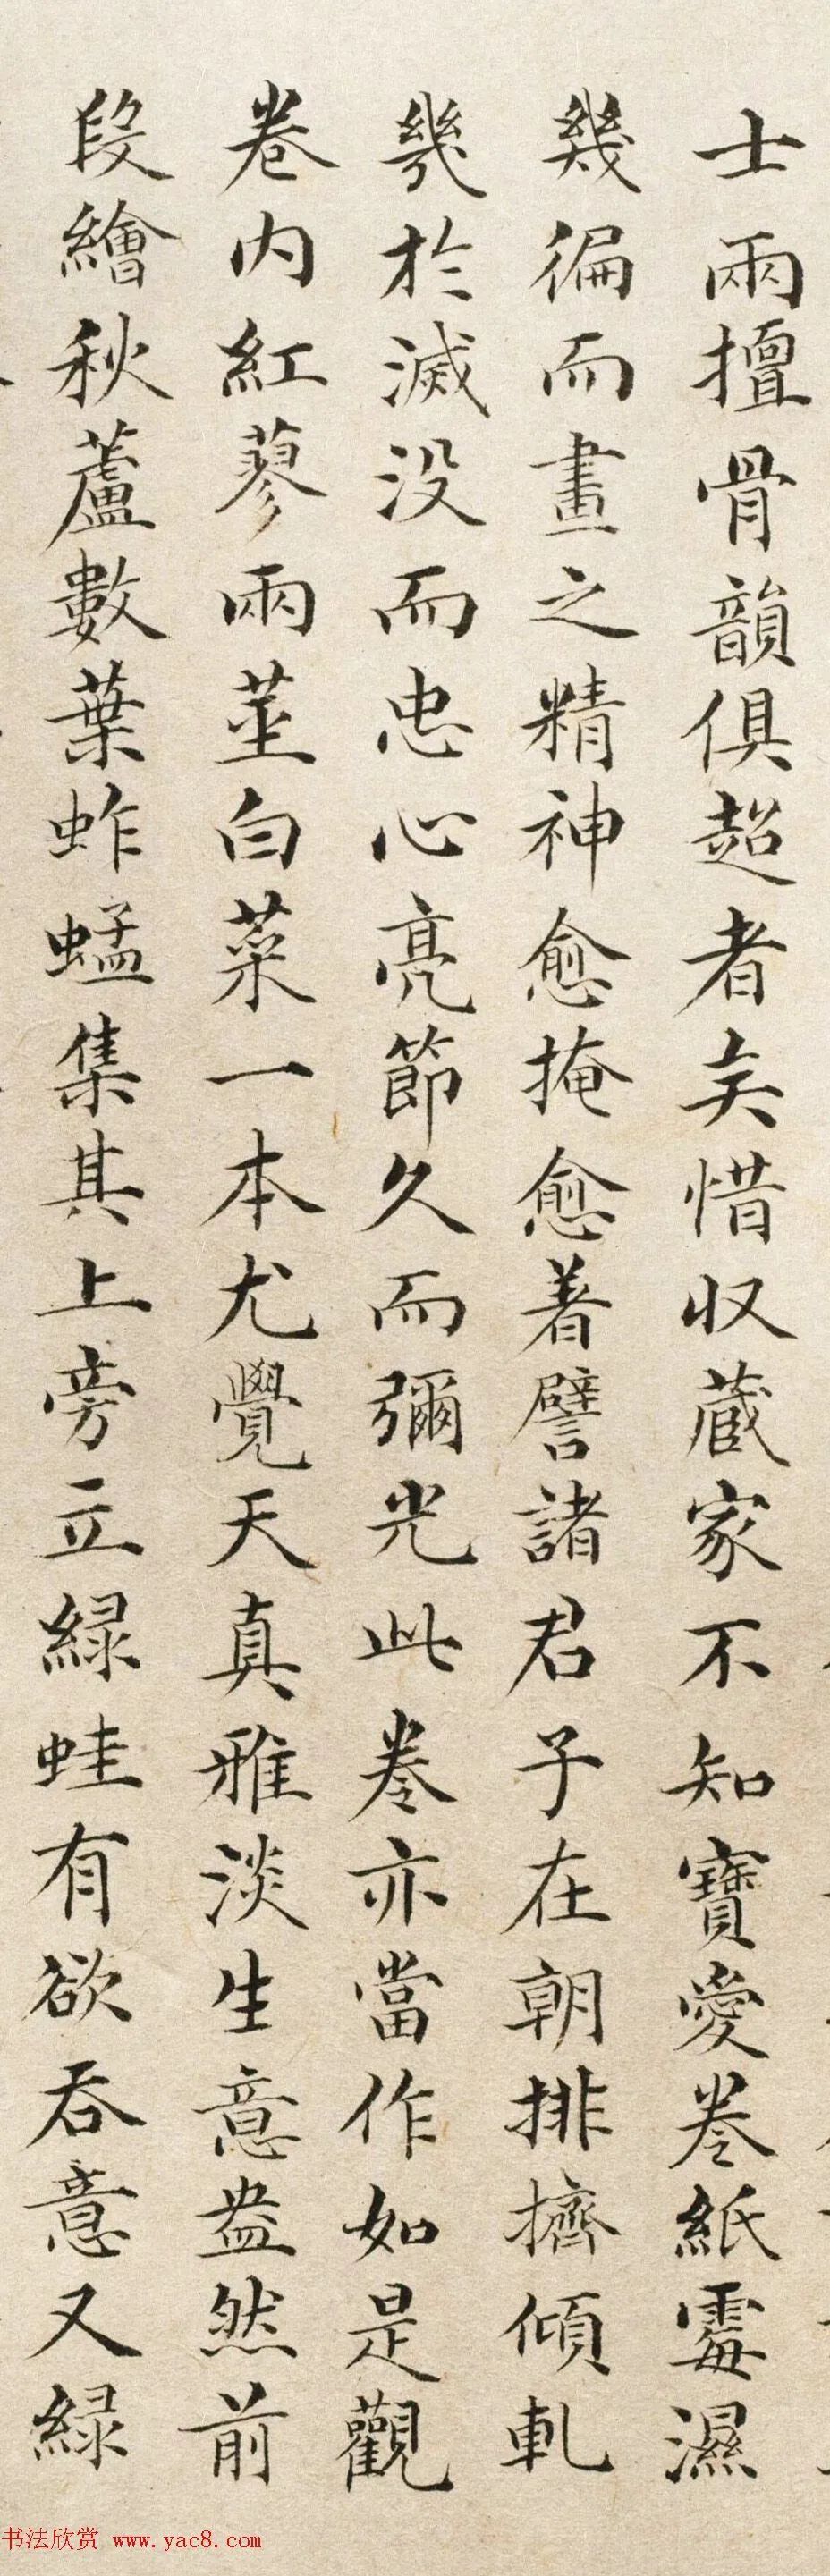 士兩擅骨韻俱超者矣惜収蔵家不知寶愛卷紙霉濕
幾徧而畫之精神愈掩愈著譬諸君子在朝排擠傾軋
幾於滅没而忠心亮節久而彌光此卷亦當作如是觀
卷内紅蓼兩莖白菜一本尤覺天真雅淡生意盎然前
段繪秋蘆數葉蚱蜢集其上旁立緑蛙有欲吞意又緑
书法欣赏 www.yac8.com